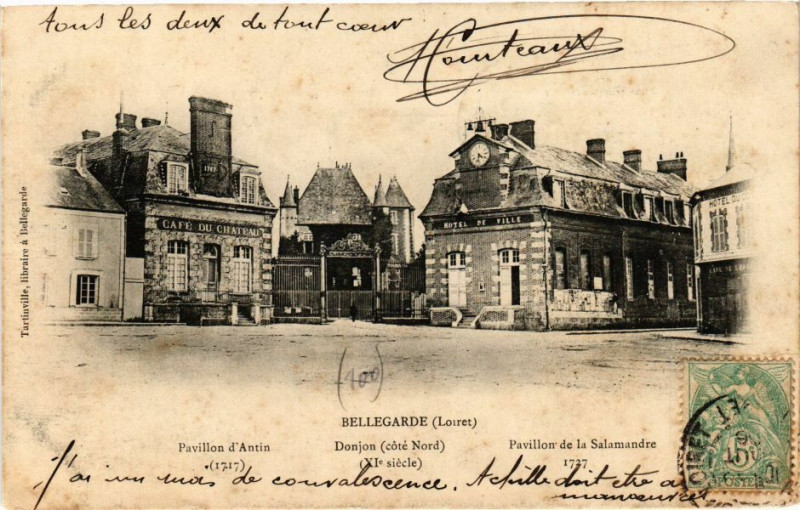 tous les deux de tout cœur
Tartinville, libraire à Bellegarde
CAFÉ DU CHATEAU
HOTEL DE VILLE
HOTEL DU
(100)
BELLEGARDE (Loiret)
Pavillon d'Antin
(1717)
Donjon (côté Nord)
(XIe siècle)
Pavillon de la Salamandre
1727
J'ai un mois de convalescence. Achille doit être aux
manœuvres
POSTE